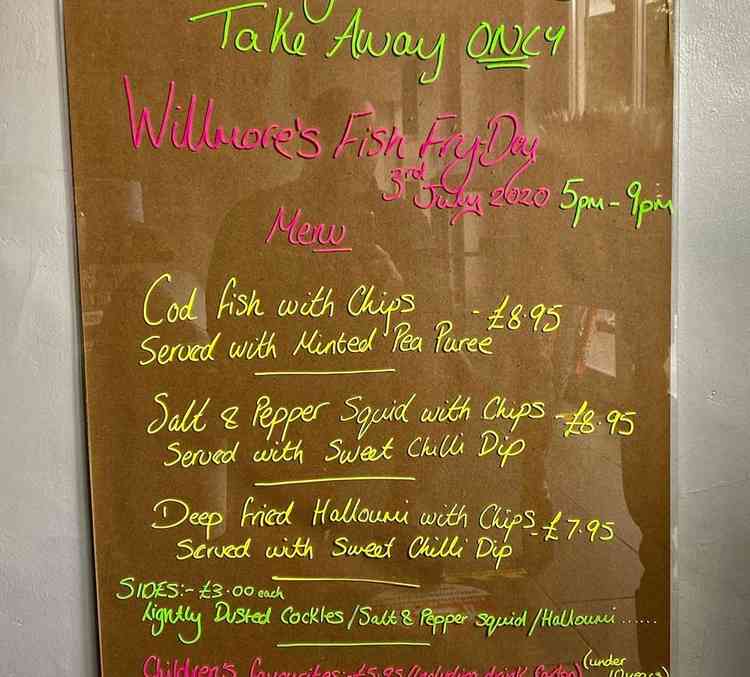 Take Away ONLY
Willmore's Fish Fry-Day
3rd July 2020 5pm - 9pm
Menu
Cod fish with Chips - £8.95
Served with Minted Pea Puree
Salt & Pepper Squid with Chips - £8.95
Served with Sweet Chilli Dip
Deep fried Halloumi with Chips - £7.95
Served with Sweet Chilli Dip
SIDES:- £3.00 each
Lightly Dusted Cockles / Salt & Pepper squid / Halloumi ......
Children's favourites:- £5.95 (Including drink (under
10 years)